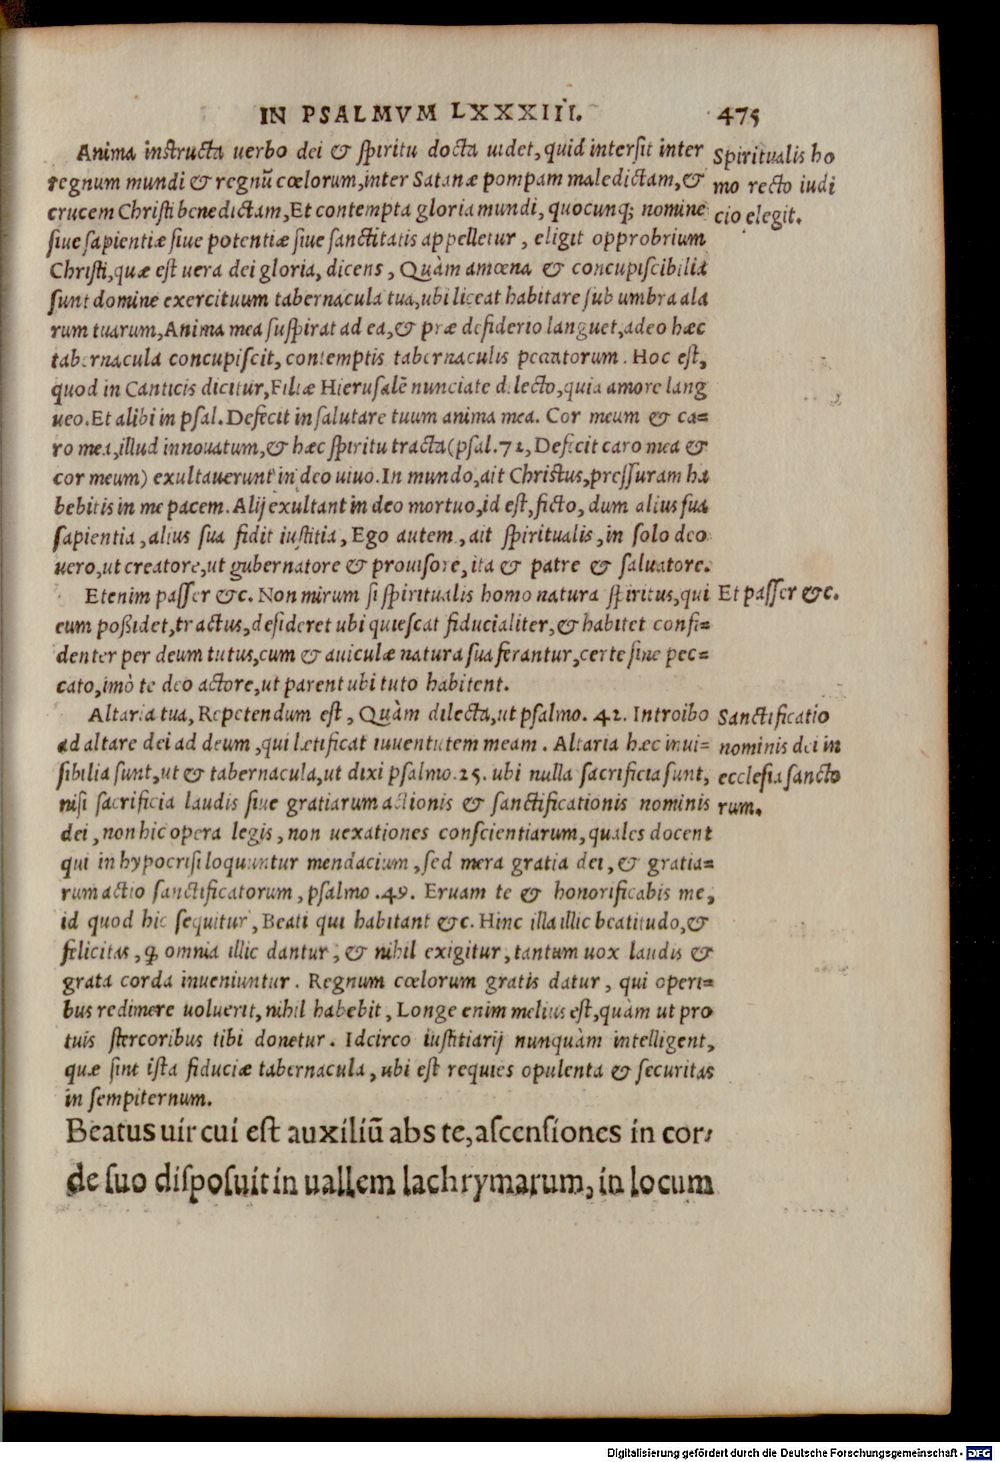 IN PSALMVM LXXXIII. 475
Anima instructa uerbo dei & spiritu docta uidet, quid intersit inter
regnum mundi & regnũ cœlorum, inter Satanæ pompam maledictam, &
crucem Christi benedictam, Et contempta gloria mundi, quocunq; nomine
siue sapientiæ siue potentiæ siue sanctitatis appelletur, eligit opprobrium
Christi, quæ est uera dei gloria, dicens, Quàm amœna & concupiscibilia
sunt domine exercituum tabernacula tua, ubi liceat habitare sub umbra ala
rum tuarum, Anima mea suspirat ad ea, & præ desiderio languet, adeo hæc
tabernacula concupiscit, contemptis tabernaculis peccatorum. Hoc est,
quod in Canticis dicitur, Filiæ Hierusalẽ nunciate dilecto, quia amore lang
ueo. Et alibi in psal. Defecit in salutare tuum anima mea. Cor meum & ca=
ro mea, illud innouatum, & hæc spiritu tracta (psal. 72, Deficit caro mea &
cor meum) exultauerunt in deo uiuo. In mundo, ait Christus, pressuram ha
bebitis in me pacem. Alij exultant in deo mortuo, id est, ficto, dum alius sua
sapientia, alius sua fidit iustitia, Ego autem, ait spiritualis, in solo deo
uero, ut creatore, ut gubernatore & prouisore, ita & patre & saluatore.
Etenim passer &c. Non mirum si spiritualis homo natura spiritus, qui
eum poßidet, tractus, desideret ubi quiescat fiducialiter, & habitet confi=
denter per deum tutus, cum & auiculæ natura sua ferantur, certe sine pec=
cato, imò te deo actore, ut parent ubi tuto habitent.
Altaria tua, Repetendum est, Quàm dilecta, ut psalmo. 42. Introibo
ad altare dei ad deum, qui letificat iuuentutem meam. Altaria hæc inui=
sibilia sunt, ut & tabernacula, ut dixi psalmo. 25. ubi nulla sacrificia sunt,
nisi sacrificia laudis siue gratiarum actionis & sanctificationis nominis
dei, non hic opera legis, non uexationes conscientiarum, quales docent
qui in hypocrisi loquuntur mendacium, sed mera gratia dei, & gratia=
rum actio sanctificatorum, psalmo. 49. Eruam te & honorificabis me,
id quod hic sequitur, Beati qui habitant &c. Hinc illa illic beatitudo, &
felicitas, ꝙ omnia illic dantur, & nihil exigitur, tantum uox laudis &
grata corda inueniuntur. Regnum cœlorum gratis datur, qui operi=
bus redimere uoluerit, nihil habebit, Longe enim melius est, quàm ut pro
tuis stercoribus tibi donetur. Idcirco iustitiarij nunquàm intelligent,
quæ sint ista fiduciæ tabernacula, ubi est requies opulenta & securitas
in sempiternum.
Beatus uir cui est auxiliũ abs te, ascensiones in cor=
de suo disposuit in uallem lachrymarum, in locum
Spiritualis ho
mo recto iudi
cio elegit.
Et passer &c.
Sanctificatio
nominis dei in
ecclesia sancto
rum.
Digitalisierung gefördert durch die Deutsche Forschungsgemeinschaft - DFG